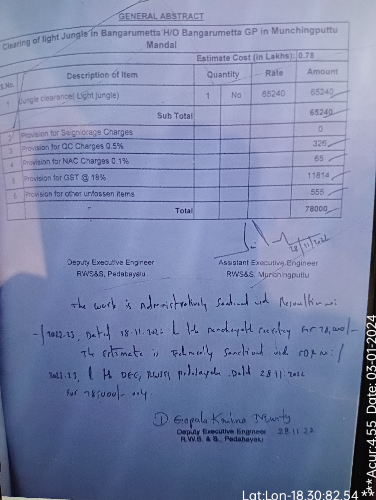 GENERAL ABSTRACT
Clearing of light Jungle in Bangarumetta H/O Bangarumetta GP in Munchingputtu Mandal
Estimate Cost (in Lakhs): 0.78
S.No. Description of Item Quantity Rate Amount
1 Jungle clearance( Light jungle) 1 No 65240 65240
Sub Total 65240
2 Provision for Seigniorage Charges 0
3 Provision for QC Charges 0.5% 326
4 Provision for NAC Charges 0.1% 65
5 Provision for GST @ 18% 11814
6 Provision for other unfossen items 555
Total 78000
28/11/22
Deputy Executive Engineer Assistant Executive Engineer
RWS&S, Pedabayalu RWS&S, Munchingputtu
The work is Administratively Sanctioned vid Resolution no:
/2022-23, Dated 18-11-2022 the panchayath for 78,000/-
The estimate is Technically Sanctioned vid no: /
2022-23, DEE, RWS, pedabayalu Dated 28.11.2022
for 78,000/- only.
Gopala Krishna Murty
Deputy Executive Engineer 28.11.22
R.W.S. & S., Pedabayalu
Lat:Lon-18.30:82.54
**Acur:4.55 Date:03-01-2024